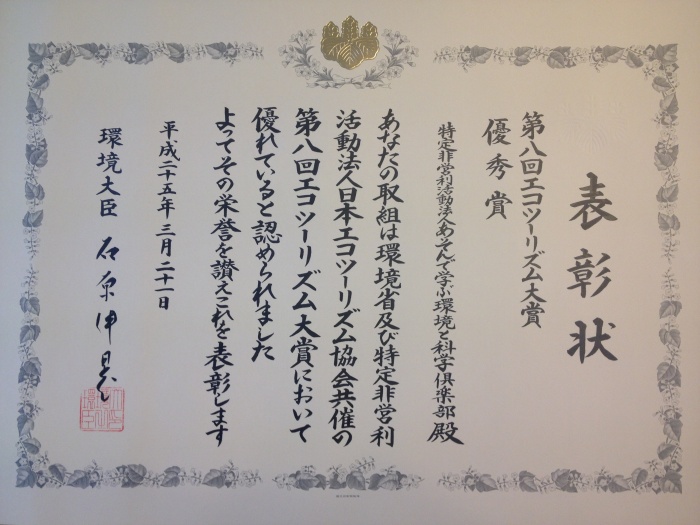 表彰状
第八回エコツーリズム大賞
優秀賞
特定非営利活動法人あそんで学ぶ環境と科学倶楽部 殿
あなたの取組は環境省及び特定非営利
活動法人日本エコツーリズム協会共催の
第八回エコツーリズム大賞において
優れていると認められました
よってその栄誉を讃えこれを表彰します
平成二十五年三月二十一日
環境大臣 石原伸晃